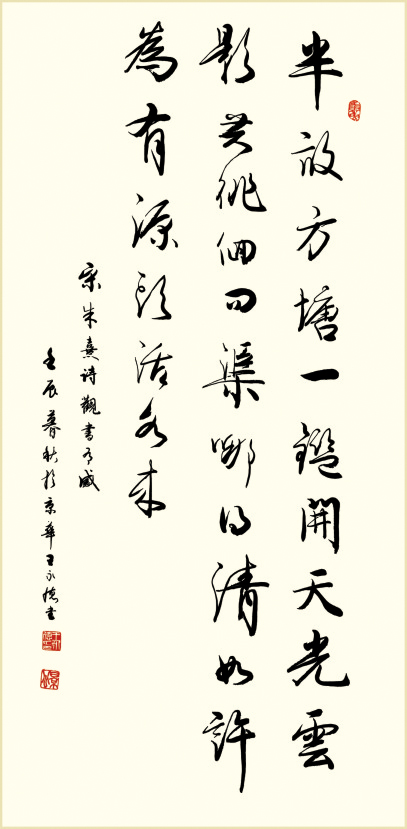 半畝方塘一鑑開天光雲
影共徘徊问渠哪得清如許
為有源頭活水来
宋朱熹诗觀書有感
壬辰暮秋於京華王永書